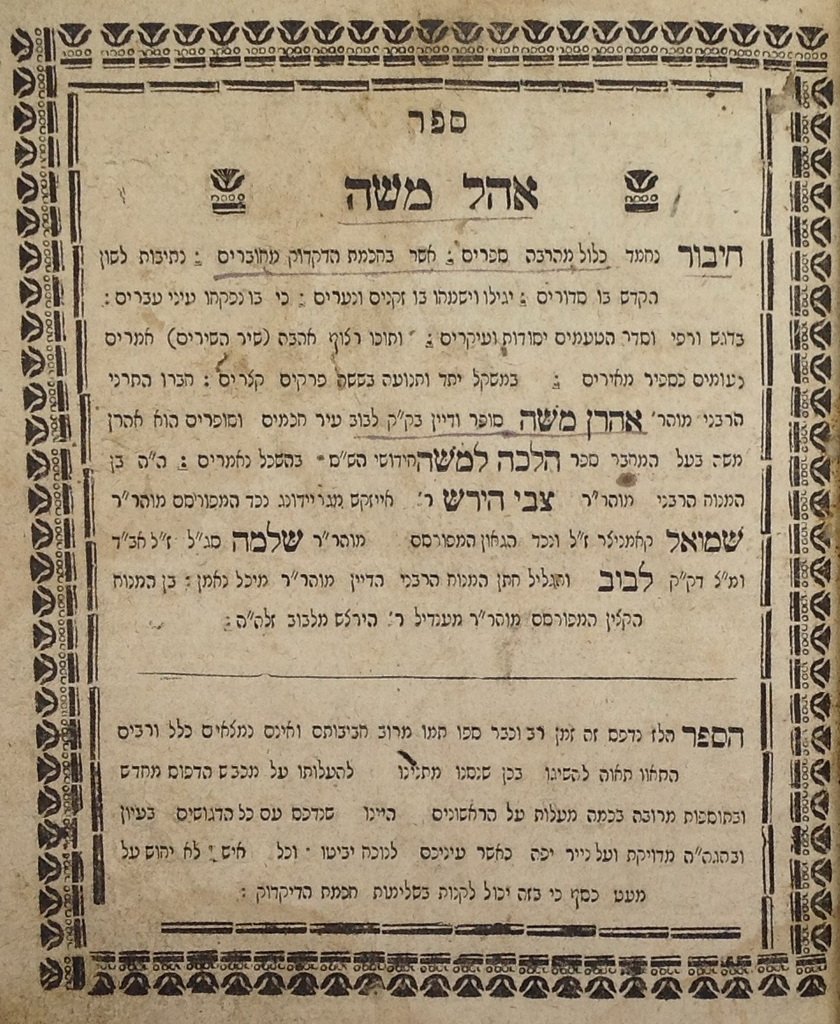 ספר
אהל משה
חיבור נחמד כלול מהרבה ספרים : אשר בחכמת הדקדוק מחוברים : נתיבות לשון
הקדש בו סדורים : יגילו וישמחו בו זקנים ונערים : כי בו נפקחו עיני עברים :
בדגש ורפי וסדר הטעמים יסודות ועיקרים : ותוכו רצוף אהבה (שיר השירים) אמרים
נעומים כספיר מאירים : במשקל יתד ותנועה בששה פרקים קצרים : חברו התרני
הרבני מוהר׳ אהרן משה סופר ודיין בק״ק לבוב עיר חכמים וסופרים הוא אהרן
משה בעל המחבר ספר הלכה למשה חידושי הש״ס בהשכל נאמרים : ה״ה בן
המנוח הרבני מוהר״ר צבי הירש ר׳ אייזקש מגריידונג נכד המפורסם מוהר״ר
שמואל קאמניצר ז״ל ונכד הגאון המפורסם מוהר״ר שלמה סג״ל ז״ל אב״ד
ומ״צ דק״ק לבוב ותגליל חתן המנוח הרבני הדיין מוהר״ר מיכל נאמן : בן המנוח
הקצין המפורסם מוהר״ר מענדיל ר׳ הירצש מלבוב זלה״ה :
הספר הלז נדפס זה זמן רב וכבר ספו תמו מרוב חביבותם ואינם נמצאים כלל ורבים
התאוו תאוה להשיגו בכן שנסנו מתנינו להעלותו על מכבש הדפוס מחדש
ובתוספות מרובה בכמה מעלות על הראשונים היינו שנדפס עם כל הדגושים בעיון
ובהגה״ה מדויקת ועל נייר יפה כאשר עיניכם לנוכח יביטו וכל איש לא יחוש על
מעט כסף כי בזה יכול לקנות בשלימות חכמת הדיקדוק :